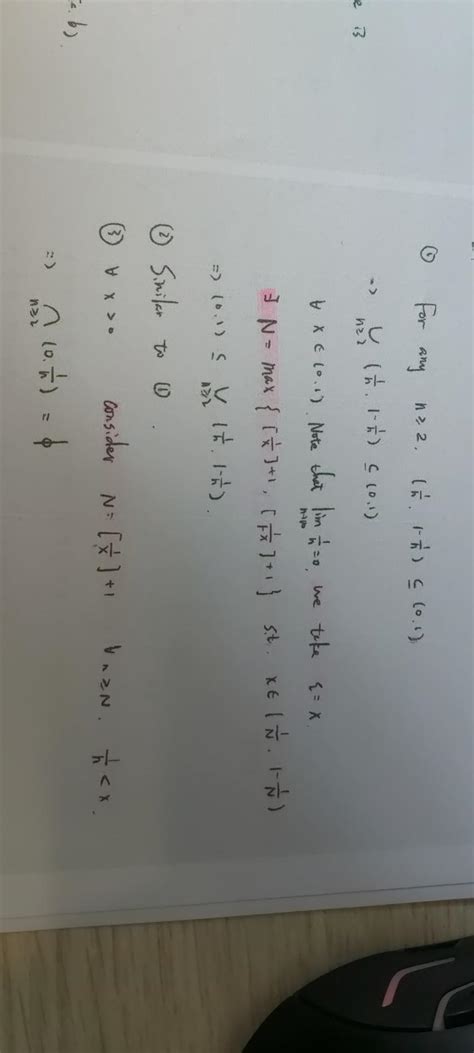 ① for any n≥2. (1/n. 1-1/n) ⊆ (0.1)
=> ∪n≥2 (1/n. 1-1/n) ⊆ (0.1)
∀ x ∈ (0.1). Note that lim n→∞ 1/n = 0, we take ξ = x.
∃ N = max { [1/x]+1, [1/1-x]+1 } s.t. x ∈ (1/N. 1-1/N)
=> (0.1) ⊆ ∪n≥2 (1/n. 1-1/n).
② Similar to ①.
③ ∀ x > 0 consider N = [1/x]+1 ∀ n ≥ N. 1/n < x.
=> ∩n≥2 (0. 1/n) = ϕ